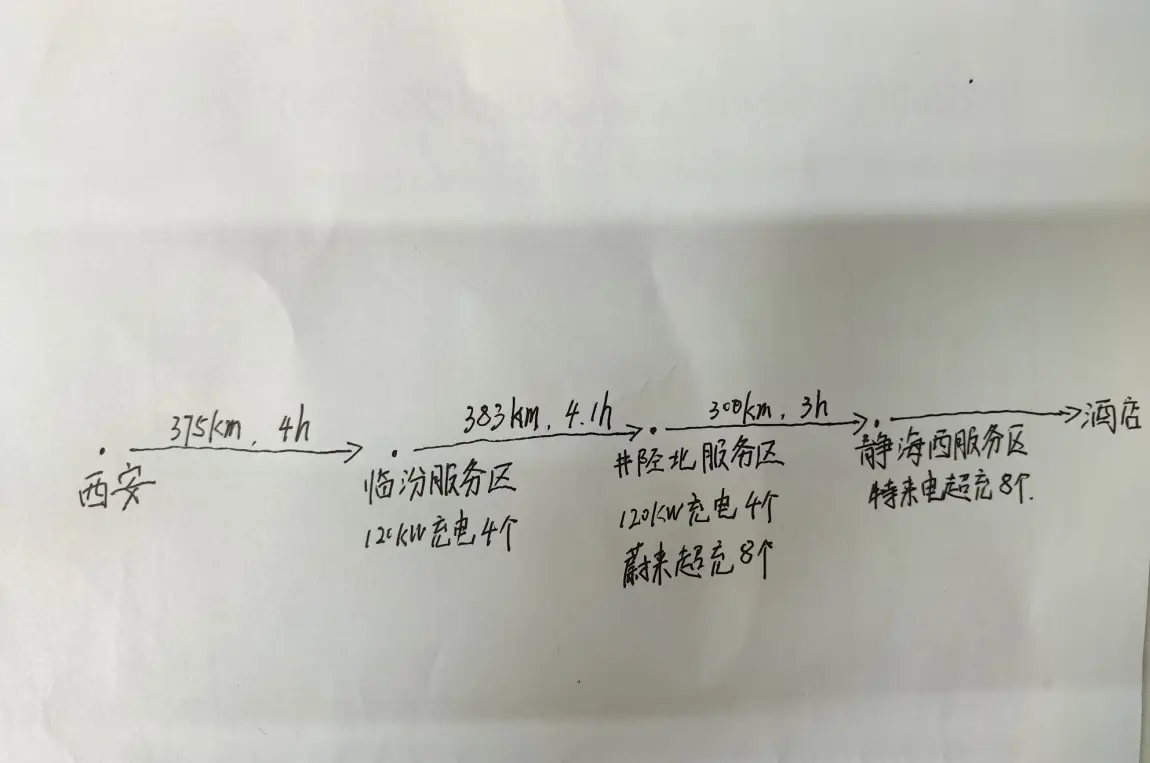 375km, 4h
383km, 4.1h
300km, 3h
西安
临汾服务区
120kW充电4个
井陉北服务区
120kW充电4个
蔚来超充8个
静海西服务区
特来电超充8个.
酒店